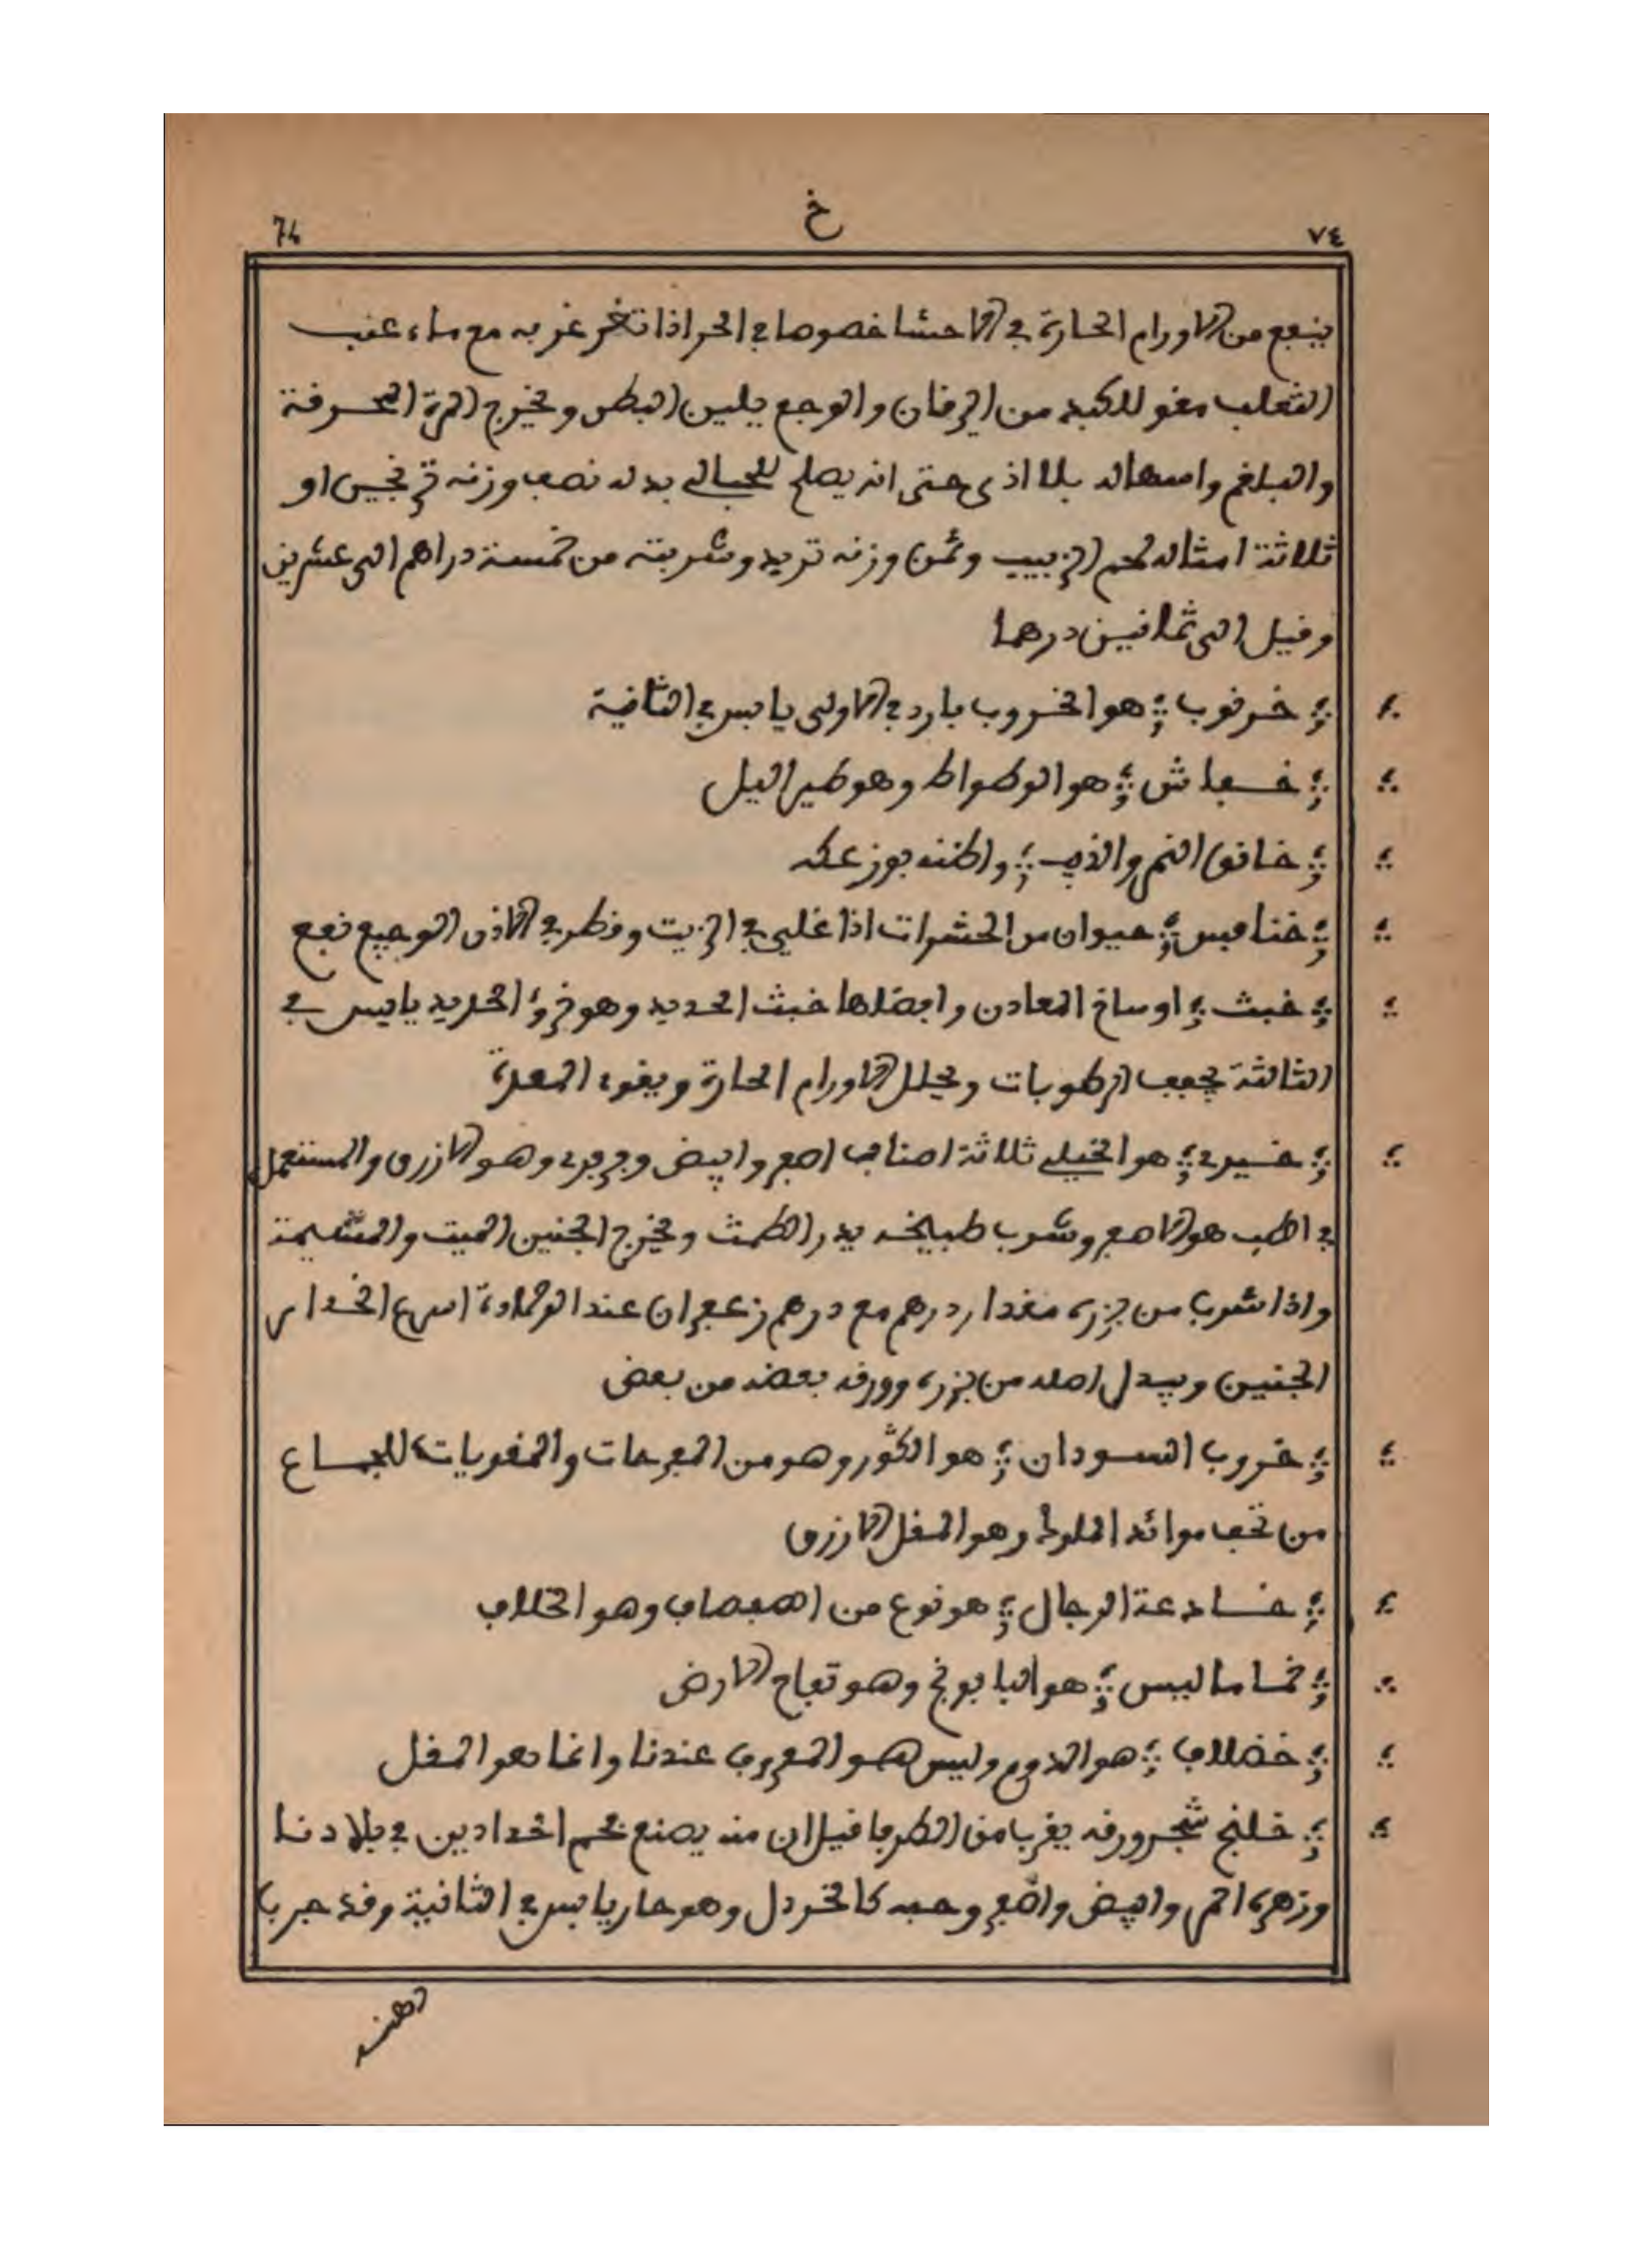 74 خ ٧٤
ينفع من الاورام الحارة في الاحشا خصوصا في الحر اذا تغرغر به مع ماء عنب
الثعلب مقو للكبد من اليرقان والوجع يلين البطن ويخرج المرة المحرقة
والبلغم واسهاله بلا اذى حتى انه يصلح للحبالى بدله نصف وزنه ترنجبين او
ثلاثة امثاله لحم الزبيب وثمن وزنه تربد وشربته من خمسة دراهم الى عشرين
وقيل الى ثمانين درهما
خرنوب هو الخروب بارد في الاولى يابس في الثانية
خفاش هو الوطواط وهو طير اليل
خانق النمر والذيب واظنه بوزعكه
خنافس حيوان من الحشرات اذا غلي في الزيت وقطر في الاذن الوجيع نفع
خبث اوساخ المعادن وافضلها خبث الحديد وهو خرء الحديد يابس في
الثالثة يجفف الرطوبات ويحلل الاورام الحارة ويقوي المعدة
خيري هو الخيلي ثلاثة اصناف اصفر وابيض وفرفري وهو الازرق والمستعمل
في الطب هو الاصفر وشرب طبيخه يدر الطمث ويخرج الجنين الميت والمشيمة
واذا شرب من بزره مقدار درهم مع درهم زعفران عند الولادة اسرع انحدار
الجنين ويبدل اصله من بزره وورقه بعضه من بعض
خروب السودان هو الكور وهو من المفرحات والمقويات للجماع
من تحف موائد الملوك وهو المقل الازرق
خادعة الرجال هو نوع من الصفصاف وهو الخلاف
خاماليس هو البابونج وهو تفاح الارض
خضلاف هو الدوم وليس هو المعروف عندنا وانما هو المقل
خلنج شجر ورقه يقرب من الطرفا قيل ان منه يصنع فحم الحدادين في بلادنا
وزهره احمر وابيض واصفر وحبه كالخردل وهو حار يابس في الثانية وقد جرب